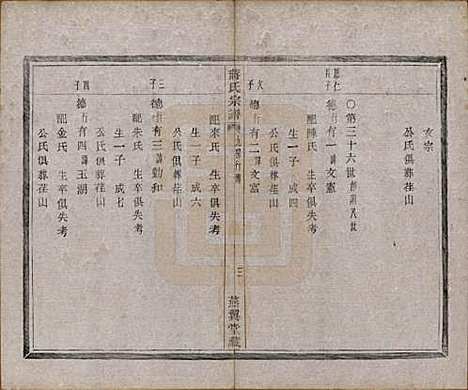 文宗
公氏俱葬荏山
〇第三十六世
德 行有一 諱文憲
配陳氏 生卒俱失考
生一子 成四
公氏俱葬荏山
次子
德 行有二 諱文憲
配來氏 生卒俱失考
生一子 成六
公氏俱葬荏山
蔣氏宗譜
三
燕翼堂藏
三子
德 行有三 諱勤和
配朱氏 生卒俱失考
生一子 成七
公氏俱葬荏山
四子
德 行有四 諱玉湖
配金氏 生卒俱失考
公氏俱葬荏山